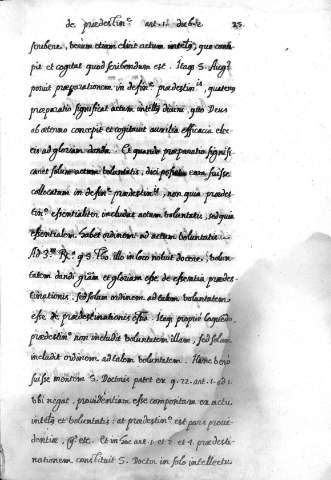 de prædestin.e art. 1. dub.
scribere, verum etiam elicit actum intellq̃, quo conci
pit et cogitat quod scribendum est. Itaq̃ S. Aug.
posuit præparationem in defin.e prædestin.is, quatenus
præparatio significat actum intellq̃ divini, quo Deus
ab æterno concepit et cogitavit auxilia efficacia elec
tis ad gloriam danda. Et quando præparatio signifi
caret solum actum voluntatis, dici posset eam fuisse
collocatam in defin.e prædestin.is, non quia prædes
tin.o essentialiter includat actum voluntatis, sed quia
essentialem habet ordinem ad actum voluntatis.
Ad 3.m R.r q̃ S. Tho. illo in loco noluit docere, volun
tatem dandi grãm et gloriam esse de essentia prædes
tinationis, sed solum ordinem ad talem voluntatem
esse de prædestinationis essã. Itaq̃ proprie loquedo
prædestin.o non includit voluntatem illam, sed solum
includit ordinem ad talem voluntatem. Hanc vero
fuisse mentem S. Doctoris patet ex q. 22. art. 1. ad 3.
ubi negat, providentiam esse compositam ex actu
intellq̃ et voluntatis: at prædestin.o est pars provi
dentiæ, etc. Et in hoc art. 1. et 2. et 4. prædesti
nationem constituit S. Doctor in solo intellectu